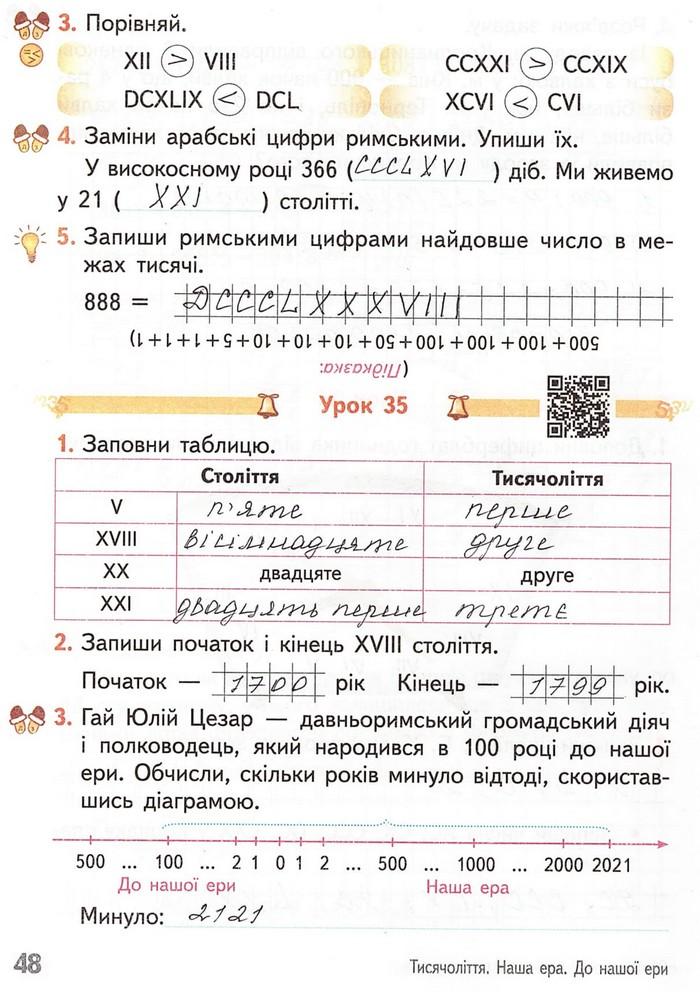 3. Порівняй.
XII > VIII CCXXI > CCXIX
DCXLIX < DCL XCVI < CVI
4. Заміни арабські цифри римськими. Упиши їх.
У високосному році 366 (CCCLXVI) діб. Ми живемо
у 21 ( XXI ) столітті.
5. Запиши римськими цифрами найдовше число в ме-
жах тисячі.
888 = DCCCLXXXVIII
500 + 100 + 100 + 100 + 50 + 10 + 10 + 10 + 5 + 1 + 1 + 1)
(Підказка:
Урок 35
1. Заповни таблицю.
Століття Тисячоліття
V п'яте перше
XVIII вісімнадцяте друге
XX двадцяте друге
XXI двадцять перше третє
2. Запиши початок і кінець XVIII століття.
Початок — 1700 рік Кінець — 1799 рік.
3. Гай Юлій Цезар — давньоримський громадський діяч
і полководець, який народився в 100 році до нашої
ери. Обчисли, скільки років минуло відтоді, скористав-
шись діаграмою.
500 ... 100 ... 2 1 0 1 2 ... 500 ... 1000 ... 2000 2021
До нашої ери Наша ера
Минуло: 2121
48 Тисячоліття. Наша ера. До нашої ери